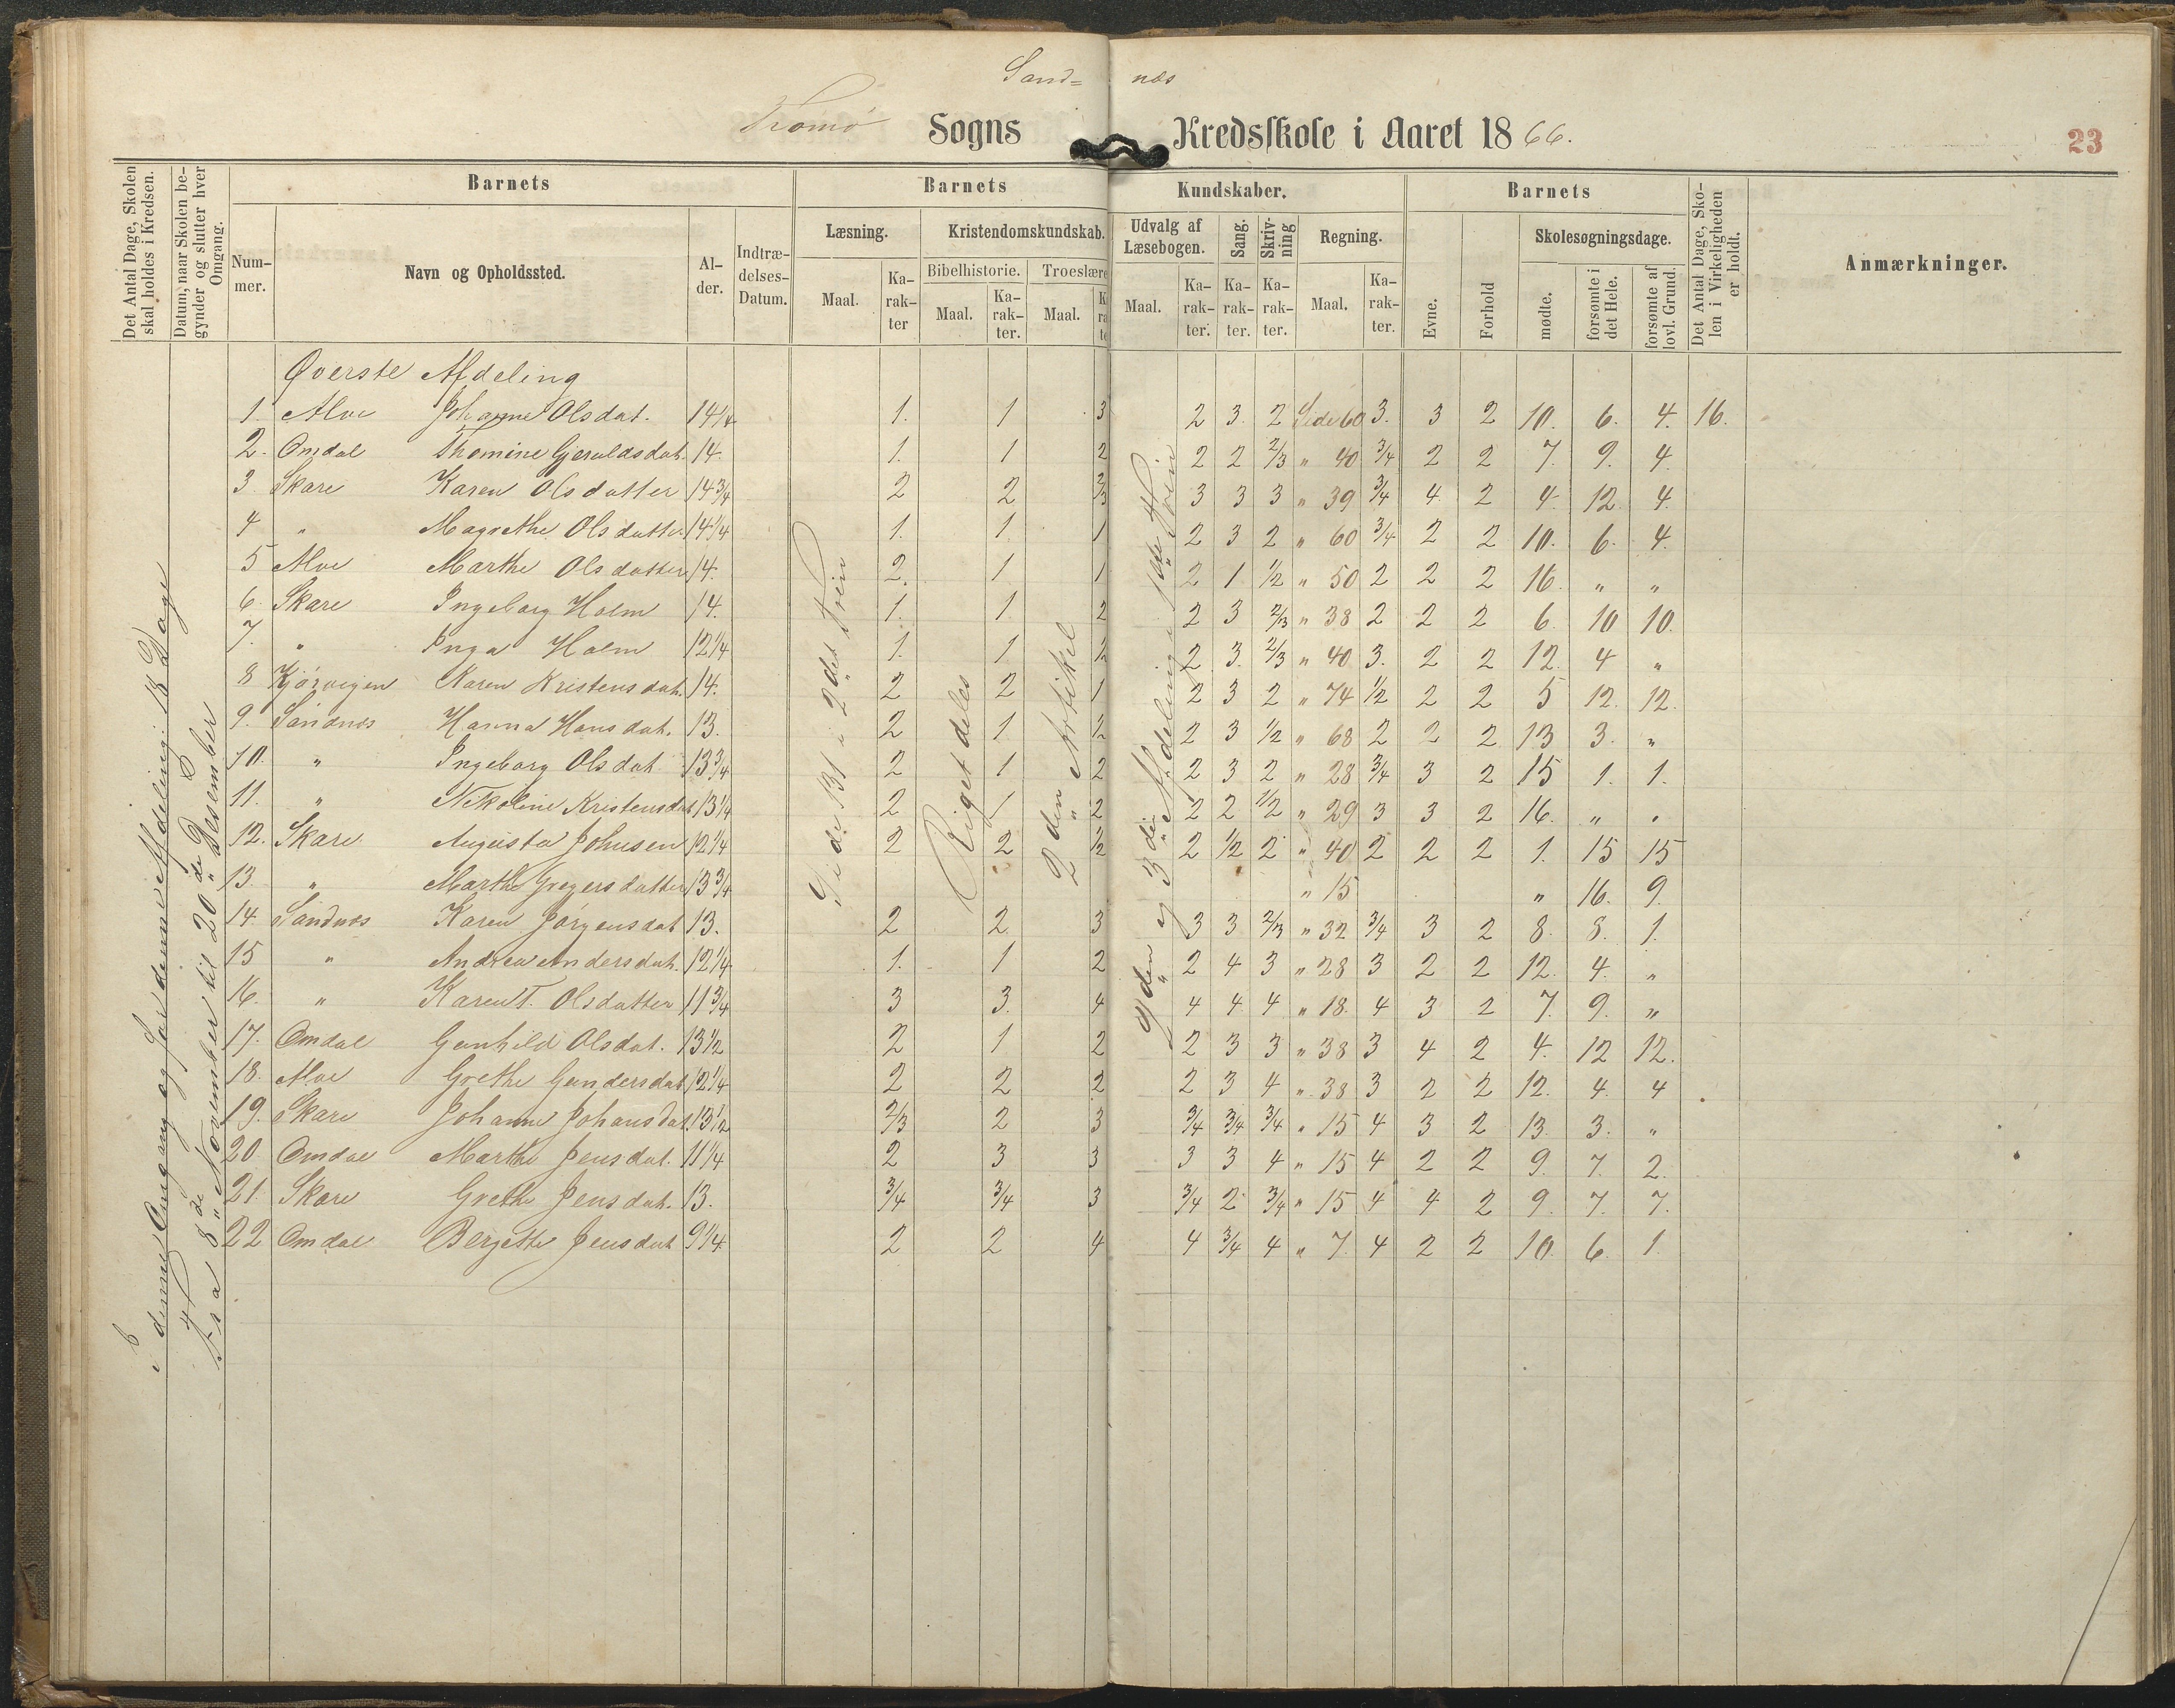 Sand= næs
Tromø Sogns Kredsskole i Aaret 1866.
23
Det Antal Dage, Skolen skal holdes i Kredsen.
Datum, naar Skolen begynder og slutter hver Omgang.
Barnets
Nummer.
Navn og Opholdssted.
Alder.
Indtrædelses-Datum.
Barnets
Læsning.
Maal.
Karakter
Kristendomskundskab.
Bibelhistorie.
Maal.
Karakter.
Troeslære
Maal.
Kundskaber.
Udvalg af Læsebogen.
Maal.
Karakter.
Sang.
Karakter.
Skrivning
Karakter.
Regning.
Maal.
Karakter.
Barnets
Evne.
Forhold
Skolesøgningsdage.
mødte.
forsømte i det Hele.
forsømte af lovl. Grund.
Det Antal Dage, Skolen i Virkeligheden er holdt.
Anmærkninger.
i denne Omgang og for denne Afdeling: 18 Dage
Fra 8de November til 20de Desember
Side 131 i 2det Trin
Riget deles
2den Artikel
2den og 3die Afdeling 1ste Trin
Øverste Afdeling
1 Alve Johanne Olsdat. 14 1/4 1. 1 3 2 3 2 Side 60 3. 3 2 10. 6. 4. 16.
2. Omdal Thomine Gjeruldsdat. 14. 1. 1 2 2 2 2/3 " 40 3/4 2 2 7. 9. 4.
3. Skare Karen Olsdatter 14 3/4 2 2 2/3 3 3 3 " 39 3/4 4 2 4. 12. 4.
4 " Magrethe Olsdatter 14 1/4 1. 1. 1 2 3 2 " 60 3/4 2 2 10. 6. 4.
5 Alve Marthe Olsdatter 14. 2. 1 1 2 1 1/2 " 50 2 2 2 16. " "
6. Skare Ingeborg Holm 14. 1. 1. 2 2 3 2/3 " 38 2 2 2 6. 10 10.
7. " Inga Holm 12 1/4 1. 1 1/2 2 3. 2/3 " 40 3. 2 2 12. 4 "
8 Kjørvigen Karen Kristensdat. 14. 2 2 1 2 3 2 " 74 1/2 2 2 5 12. 12.
9. Sandnæs Hanna Hansdat. 13. 2 1 1/2 2 3 1/2 " 68 2 2 2 13 3. "
10. " Ingeborg Olsdat 13 3/4 2 1 2 2 3 2 " 28 3/4 3 2 15 1. 1.
11. " Nikoline Kristensdat 13 1/4 2 1 2 2 2 1/2 " 29 3 3 2 16. " "
12. Skare Augusta Johnsen 12 1/4 2 2 1/2 2 1/2 2 " 40 2 2 2 1. 15 15
13. " Marthe Gregersdatter 13 3/4 " 15 " 16. 9.
14. Sandnæs Karen Jörgensdat 13. 2 2 3 3 3 2/3 " 32 3/4 3 2 8. 8. 1.
15 " Andrea Andersdat. 12 1/4 1. 1 2 2 4 3 " 28 3 2 2 12. 4. "
16. " Karen T. Olsdatter 11 3/4 3 3. 4 4 4 4 " 18. 4 3 2 7. 9. "
17. Omdal Gunhild Olsdat. 13 1/2 2 1 2 2 3 3 " 38 3 4 2 4. 12 12.
18. Alve Grethe Gundersdat 12 1/4 2 2 2 2 3 4 " 38 3 2 2 12. 4. 4
19. Skare Johanne Johansdat. 13 1/2 2/3 2 3 3/4 3/4 3/4 " 15 4 3 2 13. 3. "
20 Omdal Marthe Jensdat. 11 1/4 2 3 3 3 3 4 " 15 4 2 2 9. 7. 2.
21. Skare Grethe Jensdat. 13. 3/4 3/4 3 3/4 2 3/4 " 15 4 4 2 9. 7. 7.
22 Omdal Bergette Jensdat 9 1/4 2 2 4 4 3/4 4 " 7. 4 2 2 10. 6. 1.